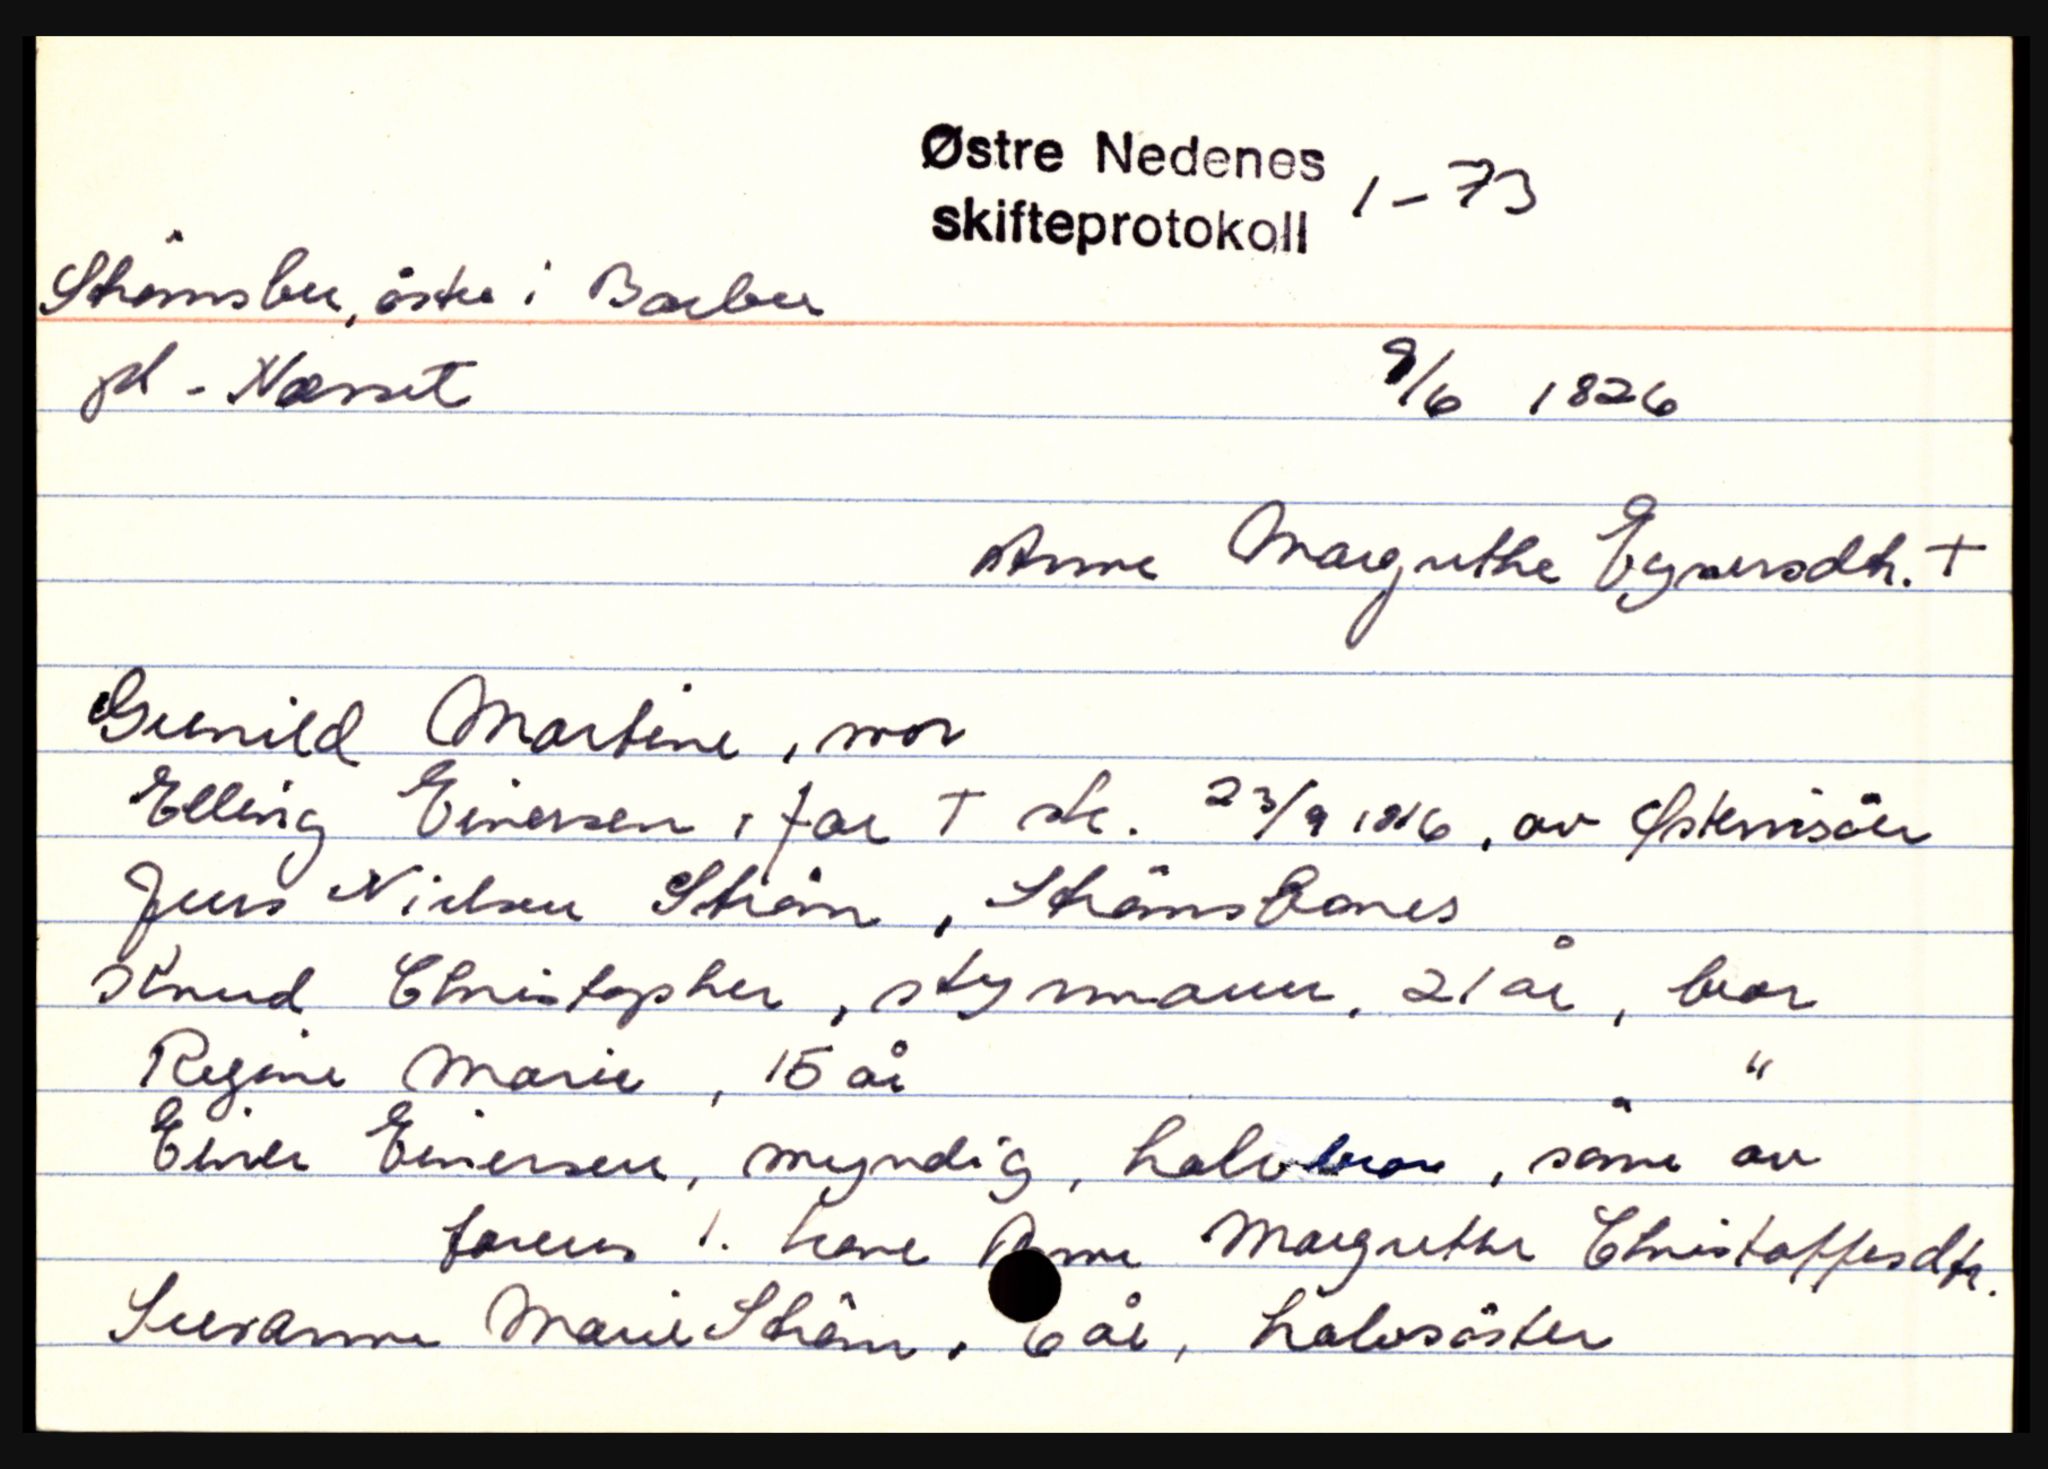 Østre Nedenes
skifteprotokoll 1-73
Strömsbu, östre i Barbu
pl - Næsset 9/6 1826
Anne Margrethe Eynersdtr. †
Gunild Martine, mor
Elling Einersen, far † sk. 23/9 1816, av Østerrisöer
Jens Nielsen Ström, Strömsbones
Knud Christopher, styrmann, 21 år, bror
Regine Marie, 15 år "
Einer Einersen, myndig, halvbror, sönn av
farens 1. kone Anne Margrethe Christoffersdtr.
Susanne Marie Ström, 6 år, halvsöster